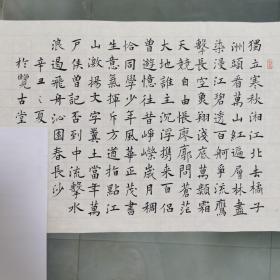 獨立寒秋湘江北去橘子
洲頭看萬山紅遍層林盡
染漫江碧透百舸爭流鷹
擊長空魚翔淺底萬類霜
天競自由悵廖廓問蒼茫
大地誰主沉浮攜來百侶
曾遊憶往昔崢嶸歲月稠
恰同學少年風華正茂書
生意氣揮斥方遒指點江
山激揚文字糞土當年萬
戶侯曾記否到中流擊水
浪遏飛舟沁園春長沙
辛丑之夏
於覽古堂